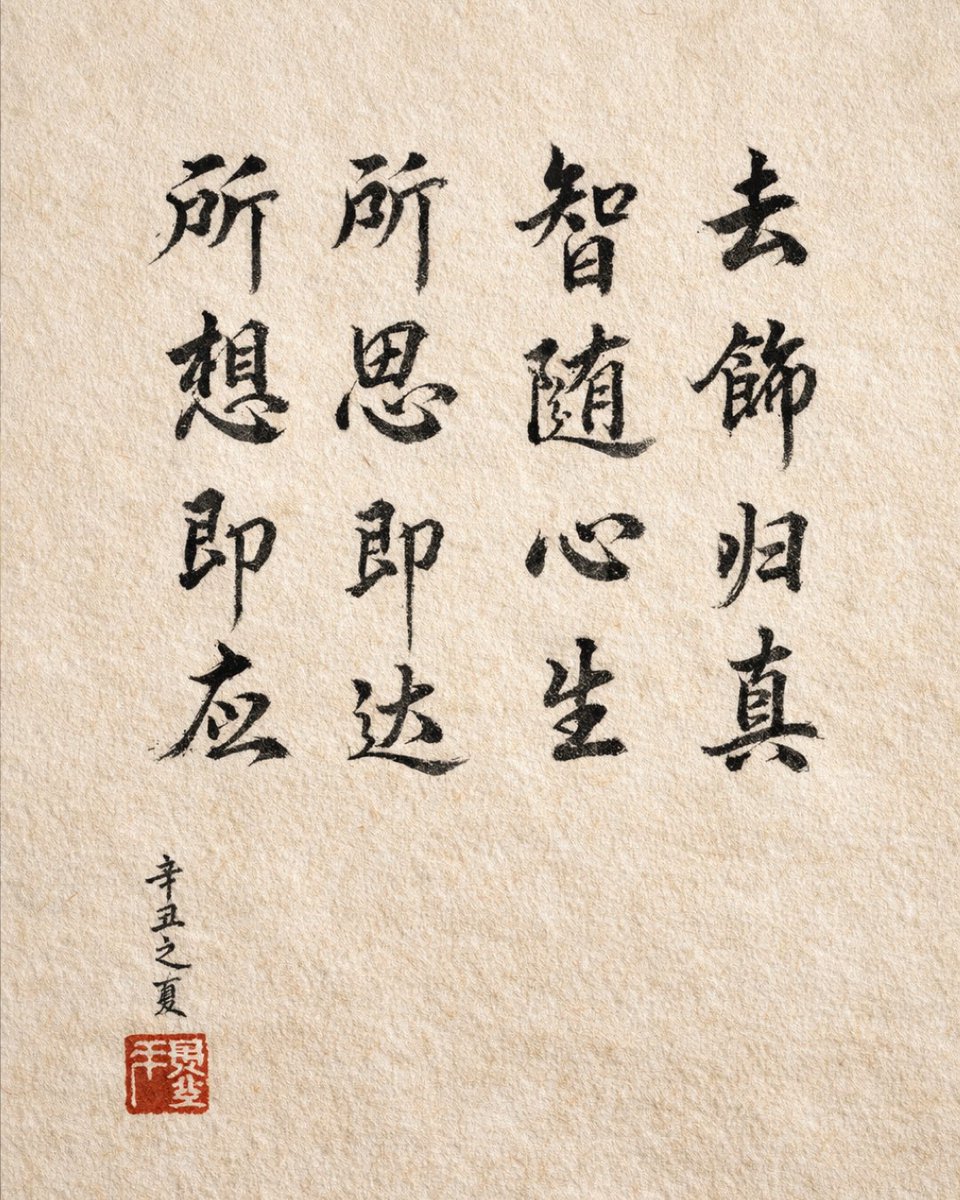 去饰归真
智随心生
所思即达
所想即应
辛丑之夏